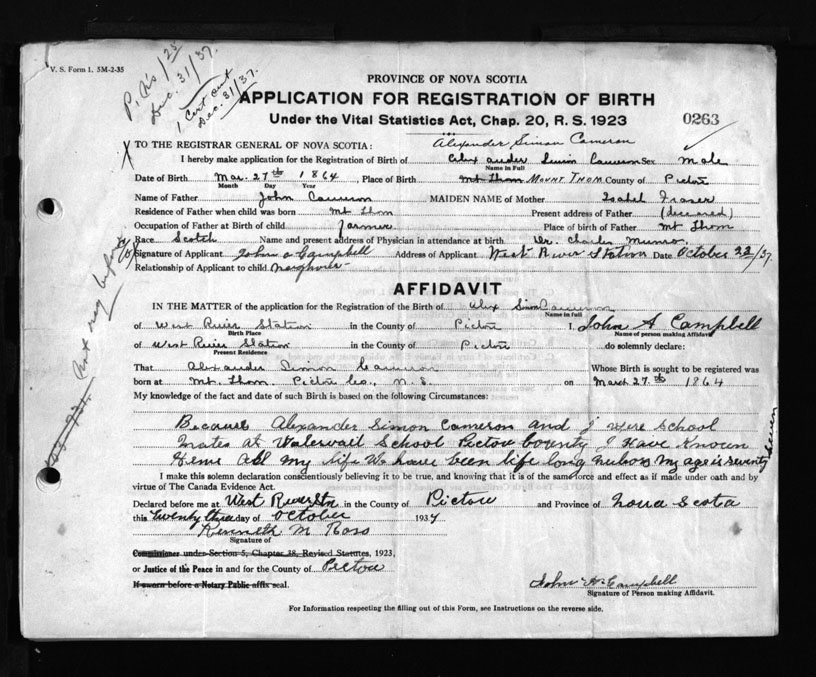 V. S. Form 1. 5M-2-35
Dec. 31/37.
1 Cert out
Dec. 31/37.
PROVINCE OF NOVA SCOTIA
APPLICATION FOR REGISTRATION OF BIRTH
Under the Vital Statistics Act, Chap. 20, R. S. 1923
0263
Alexander Simon Cameron
X TO THE REGISTRAR GENERAL OF NOVA SCOTIA:
I hereby make application for the Registration of Birth of Alexander Simon Cameron Sex Male
Name in Full
Date of Birth Mar. 27th 1864, Place of Birth Mt Thom MOUNT THOM County of Pictou
Month Day Year
Name of Father John Cameron MAIDEN NAME of Mother Isabel Fraser
Residence of Father when child was born Mt Thom Present address of Father (deceased)
Occupation of Father at Birth of child farmer Place of birth of Father Mt Thom
Race Scotch Name and present address of Physician in attendance at birth Dr. Charles Munro.
Signature of Applicant John A Campbell Address of Applicant West River Station Date October 23/37.
Relationship of Applicant to child
not reg before
AFFIDAVIT
IN THE MATTER of the application for the Registration of the Birth of Alex Simon Cameron
Name in Full
of West River Station in the County of Pictou I, John A Campbell
Birth Place Name of person making Affidavit
of West River Station in the County of Pictou do solemnly declare:
Present Residence
That Alexander Simon Cameron Whose Birth is sought to be registered was
born at Mt. Thom Pictou Co., N. S. on March 27th 1864
My knowledge of the fact and date of such Birth is based on the following Circumstances:
Because Alexander Simon Cameron and I were School
mates at Watervail School Pictou County I Have Known
Heme All my life We have been life long my age is seventy seven
I make this solemn declaration conscientiously believing it to be true, and knowing that it is of the same force and effect as if made under oath and by
virtue of The Canada Evidence Act.
Declared before me at West River Stn in the County of Pictou and Province of Nova Scota
this twenty three day of October 1937
Kenneth M Ross
Signature of
Commissioner under Section 5, Chapter 38, Revised Statutes, 1923,
or Justice of the Peace in and for the County of Pictou
If sworn before a Notary Public affix seal.
John A Campbell
Signature of Person making Affidavit.
For Information respecting the filling out of this Form, see Instructions on the reverse side.